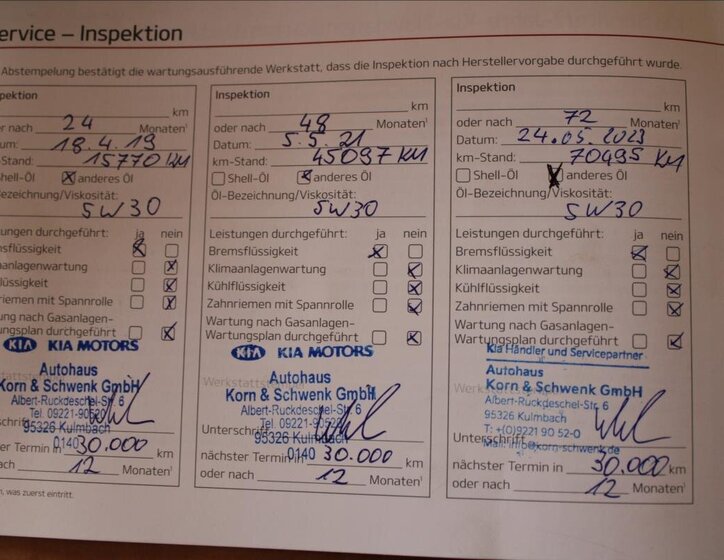 ervice – Inspektion
Abstempelung bestätigt die wartungsausführende Werkstatt, dass die Inspektion nach Herstellervorgabe durchgeführt wurde.
pektion
km
er nach 24 Monaten¹
um: 18.4.19
-Stand: 15770 KM
hell-Öl anderes Öl
ezeichnung/Viskosität:
5W30
ungen durchgeführt: ja nein
msflüssigkeit
aanlagenwartung
flüssigkeit
riemen mit Spannrolle
ung nach Gasanlagen-
ungsplan durchgeführt
KIA KIA MOTORS
Autohaus
Korn & Schwenk GmbH
Albert-Ruckdeschel-Str. 6
Tel. 09221-90520
95326 Kulmbach
schrift
0140
ter Termin in 30.000 km
ach 12 Monaten¹
n, was zuerst eintritt.
Inspektion
km
oder nach 48 Monaten¹
Datum: 5.5.21
km-Stand: 45097 KM
Shell-Öl anderes Öl
Öl-Bezeichnung/Viskosität:
5W30
Leistungen durchgeführt: ja nein
Bremsflüssigkeit
Klimaanlagenwartung
Kühlflüssigkeit
Zahnriemen mit Spannrolle
Wartung nach Gasanlagen-
Wartungsplan durchgeführt
KIA KIA MOTORS
Autohaus
Korn & Schwenk GmbH
Albert-Ruckdeschel-Str. 6
Tel. 09221-90520
95326 Kulmbach
Unterschrift
0140
nächster Termin in 30.000 km
oder nach 12 Monaten¹
Inspektion
km
oder nach 72 Monaten¹
Datum: 24.05.2023
km-Stand: 70495 KM
Shell-Öl anderes Öl
Öl-Bezeichnung/Viskosität:
5W30
Leistungen durchgeführt: ja nein
Bremsflüssigkeit
Klimaanlagenwartung
Kühlflüssigkeit
Zahnriemen mit Spannrolle
Wartung nach Gasanlagen-
Wartungsplan durchgeführt
Kia Händler und Servicepartner
Autohaus
Korn & Schwenk GmbH
Albert-Ruckdeschel-Str. 6
95326 Kulmbach
T: +(0)9221 90 52-0
Unterschrift
Mail: info@korn-schwenk.de
nächster Termin in 30.000 km
oder nach 12 Monaten¹